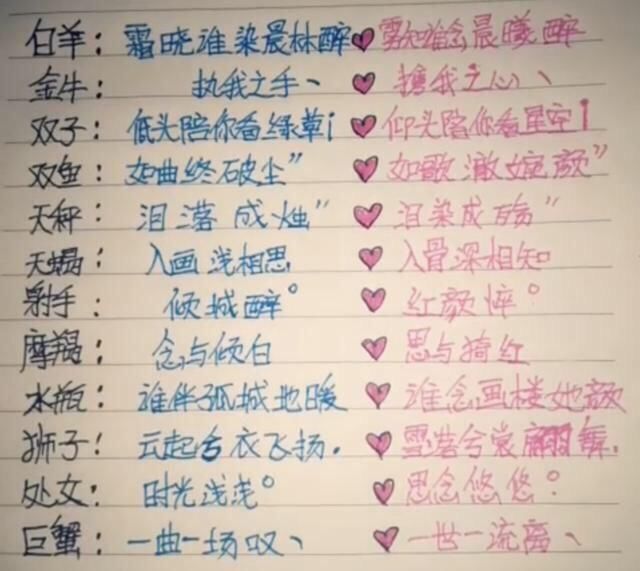 白羊：霜晓谁染晨林醉 雾知谁念晨曦醉
金牛：执我之手丶 携我之心丶
双子：低头陪你看绿草i 仰头陪你看星空i
双鱼：如曲终破尘” 如歌澈婉颜”
天秤：泪落成烛” 泪染成”
天蝎：入画浅相思 入骨深相知
射手：倾城醉° 红颜悴°
摩羯：念与倾白 思与猗红
水瓶：谁伴孤城地暖 谁念画楼她颜
狮子！云起兮衣飞扬. 雪落兮裳翩舞.
处女：时光浅浅° 思念悠悠°
巨蟹：一曲一场叹丶 一世一流离丶